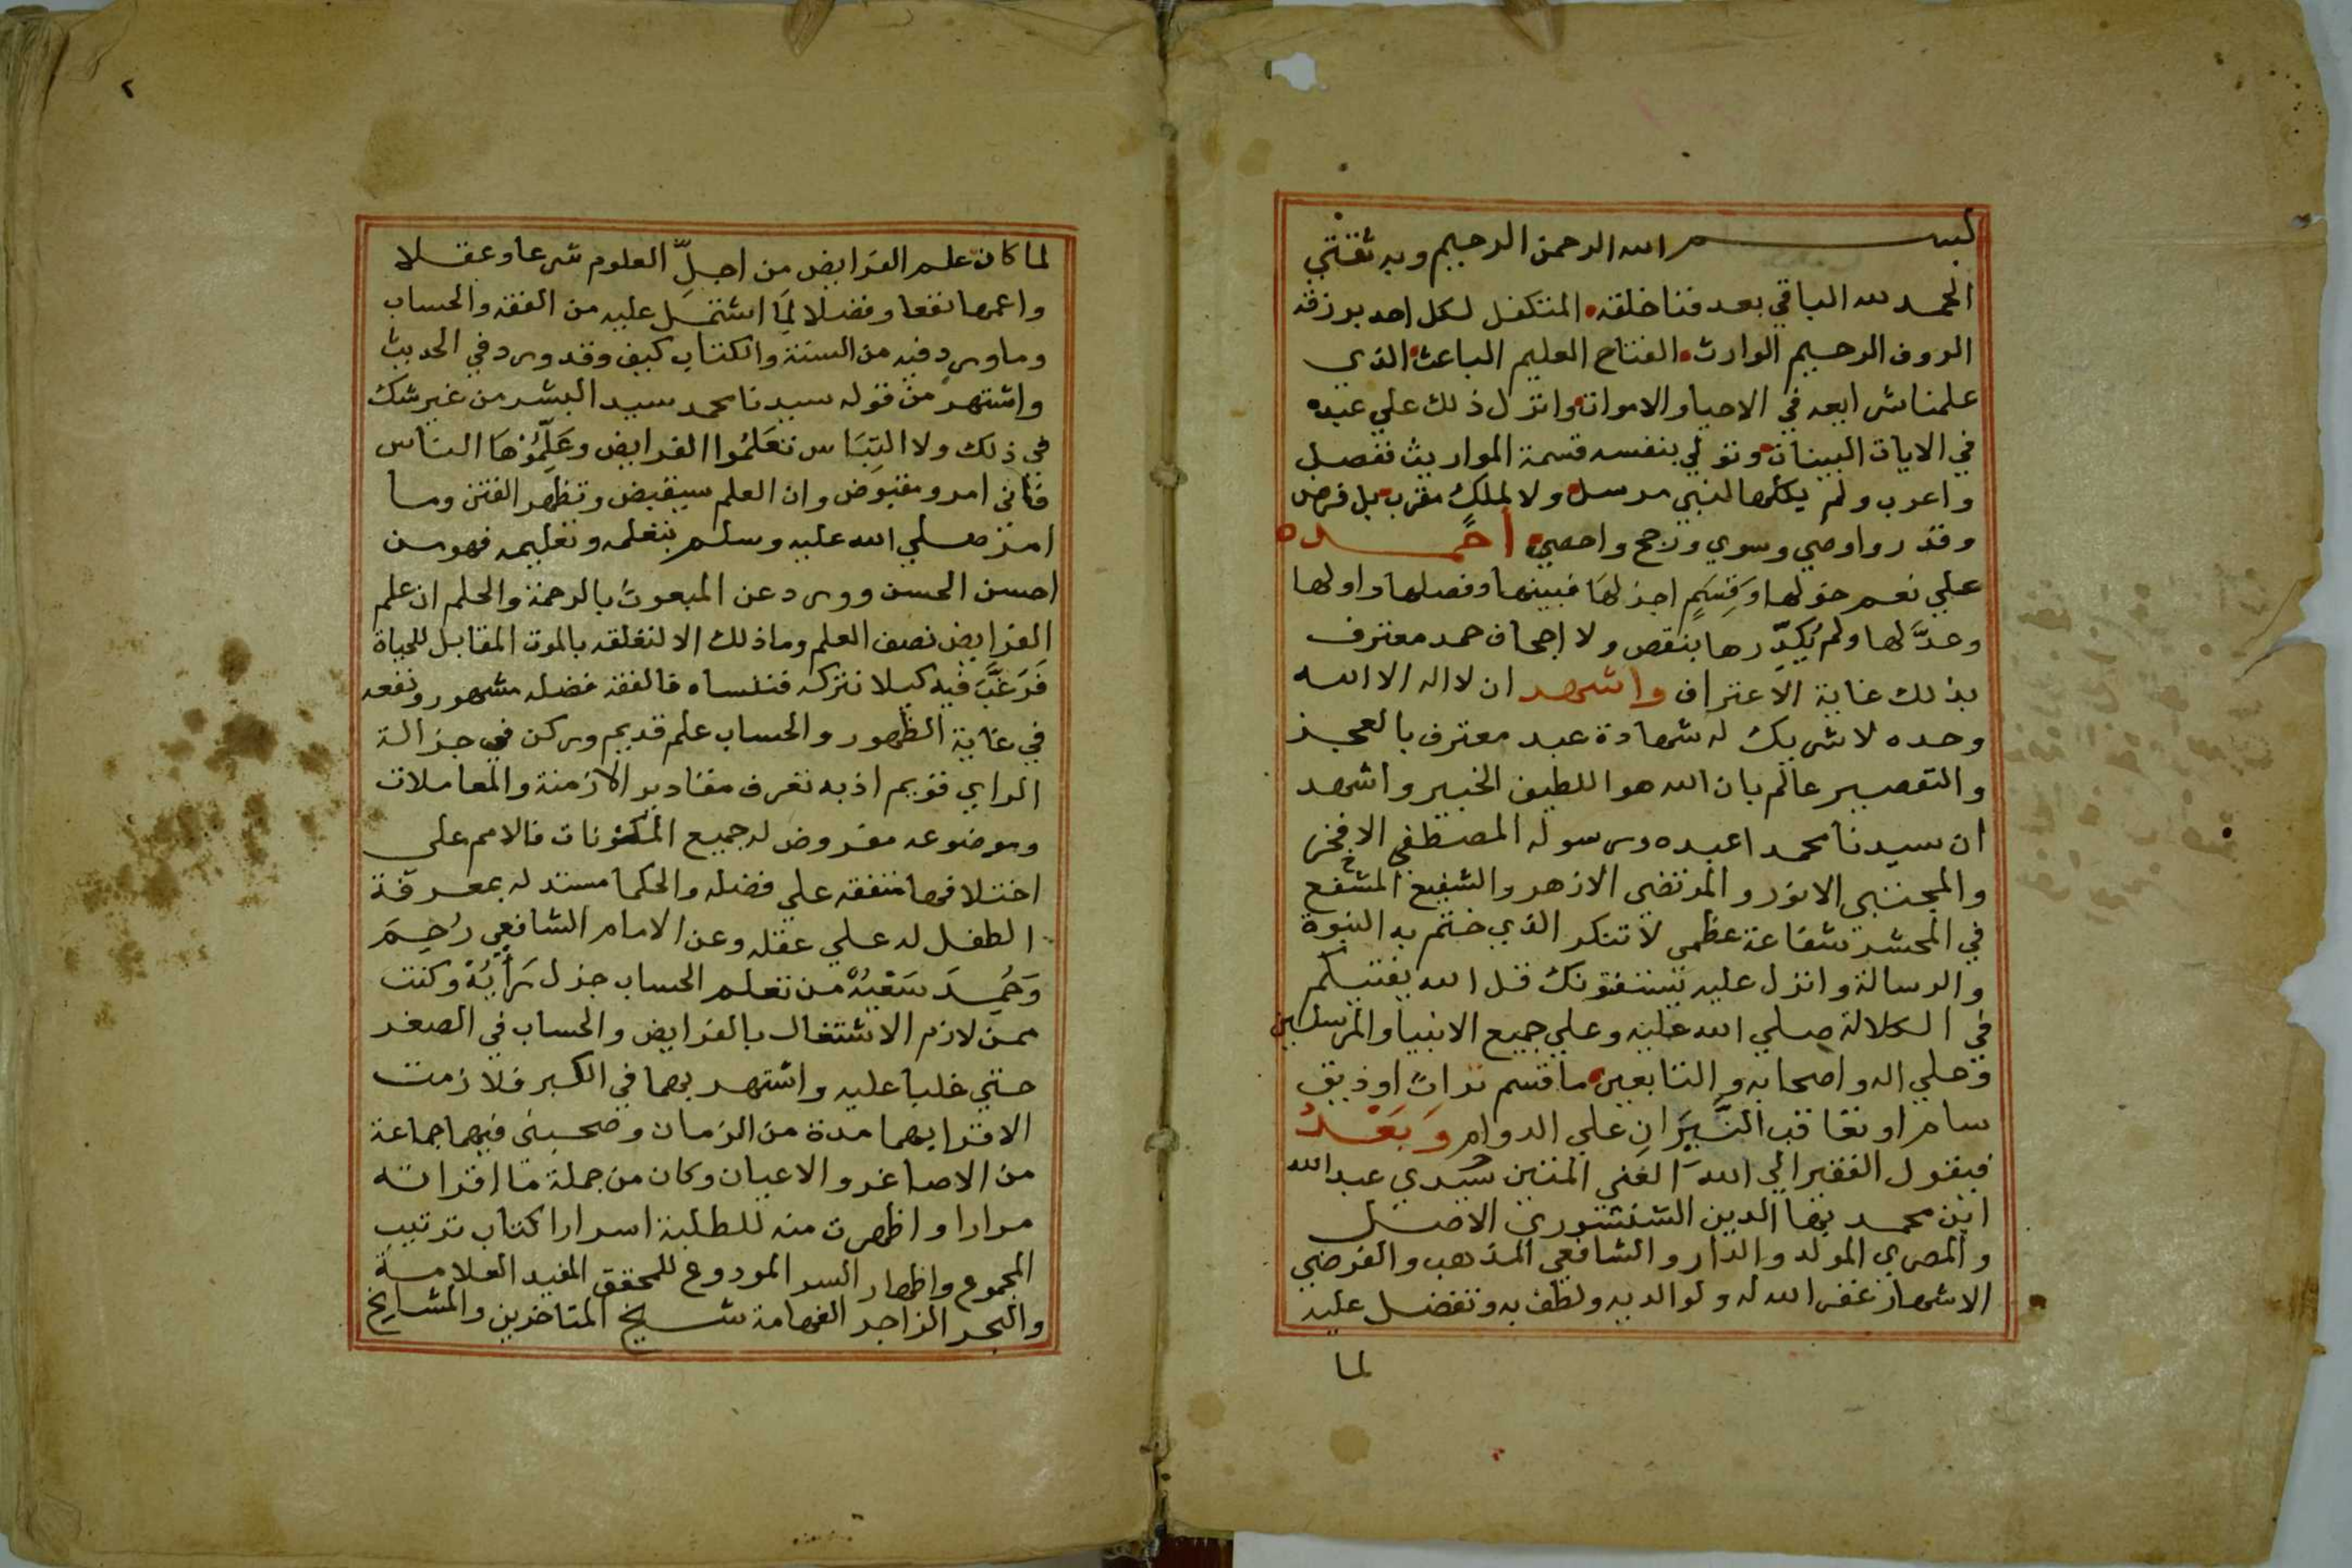 بسم الله الرحمن الرحيم وبه ثقتي
الحمد لله الباقي بعد فنا خلقه المتكفل لكل احد برزقه
الروف الرحيم الوارث الفتاح العليم الباعث الذي
علمنا شرايعه في الاحيا والاموات وانزل ذلك علي عبده
في الايات البينات وتولي بنفسه قسمة المواريث ففصل
واعرب ولم يكلها لنبي مرسل ولا لملك مقرب بل فرض
وقدر واوصي وسوي ورجح واحصي احمده
علي نعم خولها وقسم اجزلها فبينها وفصلها واولها
وعدّلها ولم يكدّرها بنقص ولا اجحاف حمد معترف
بذلك غاية الاعتراف واشهد ان لا اله الا الله
وحده لا شريك له شهادة عبد معترف بالعجز
والتقصير عالم بان الله هو اللطيف الخبير واشهد
ان سيدنا محمدا عبده ورسوله المصطفي الافخر
والمجتبي الانور والمرتضي الازهر والشفيع المشفع
في المحشر شفاعة عظمي لا تنكر الذي ختم به النبوة
والرسالة وانزل عليه يستفتونك قل الله يفتيكم
في الكلالة صلي الله عليه وعلي جميع الانبيا والمرسلين
وعلي اله واصحابه والتابعين ما قسم تراث اوذيق
سام او تعاقب النَّيِّرَانِ علي الدوام وَبَعْدُ
فيقول الفقير الي الله الغني المتين سيدي عبد الله
ابن محمد بها الدين الشنشوري الاصل
والمصري المولد والدار والشافعي المذهب والفرضي
الاشهار غفر الله له ولوالديه ولطف به وتفضل عليه
لما
٢
لما كان علم الفرايض من اجلّ العلوم شرعا وعقلا
واعمها نفعا وفضلا لِمَا اشتمل عليه من الفقه والحساب
وما ورد فيه من السنة والكتاب كيف وقد ورد في الحديث
واشتهر من قوله سيدنا محمد سيد البشر من غير شك
في ذلك ولا التِبَاس تَعَلَّمُوا الفرايض وعَلِّمُوْهَا الناس
فاني امرو مقبوض وان العلم سيقبض وتظهر الفتن وما
امر صلي الله عليه وسلم بتعلمه وتعليمه فهو من
احسن الحسن وورد عن المبعوث بالرحمة والحلم ان علم
الفرايض نصف العلم وما ذلك الا لتعلقه بالموت المقابل للحياة
فَرَغَّبَ فيه كيلا نتركه فننساه فالفقه فضله مشهور ونفعه
في غاية الظهور والحساب علم قديم وركن في جزالة
الراي قويم اذ به تعرف مقادير الازمنة والمعاملات
وموضوعه مفروض له جميع المكونات فالامم علي
اختلافها متفقه علي فضله والحكما مستدله بمعرفة
الطفل له علي عقله وعن الامام الشافعي رُحِمَ
وَحُمِدَ سَعْيُهُ من تعلم الحساب جزل رَأيُهُ وكنت
ممن لازم الاشتغال بالفرايض والحساب في الصغر
حتي غلبا عليه واشتهر بهما في الكبر فلازمت
الاقرا بهما مدة من الزمان وصحبني فيهما جماعة
من الاصاغر والاعيان وكان من جملة ما اقراته
مرارا واظهرت منه للطلبة اسرارا كتاب ترتيب
المجموع واظهار السر المودوع للمحقق المفيد العلامة
والبحر الزاجر الفهامة شيخ المتاخرين والمشايخ